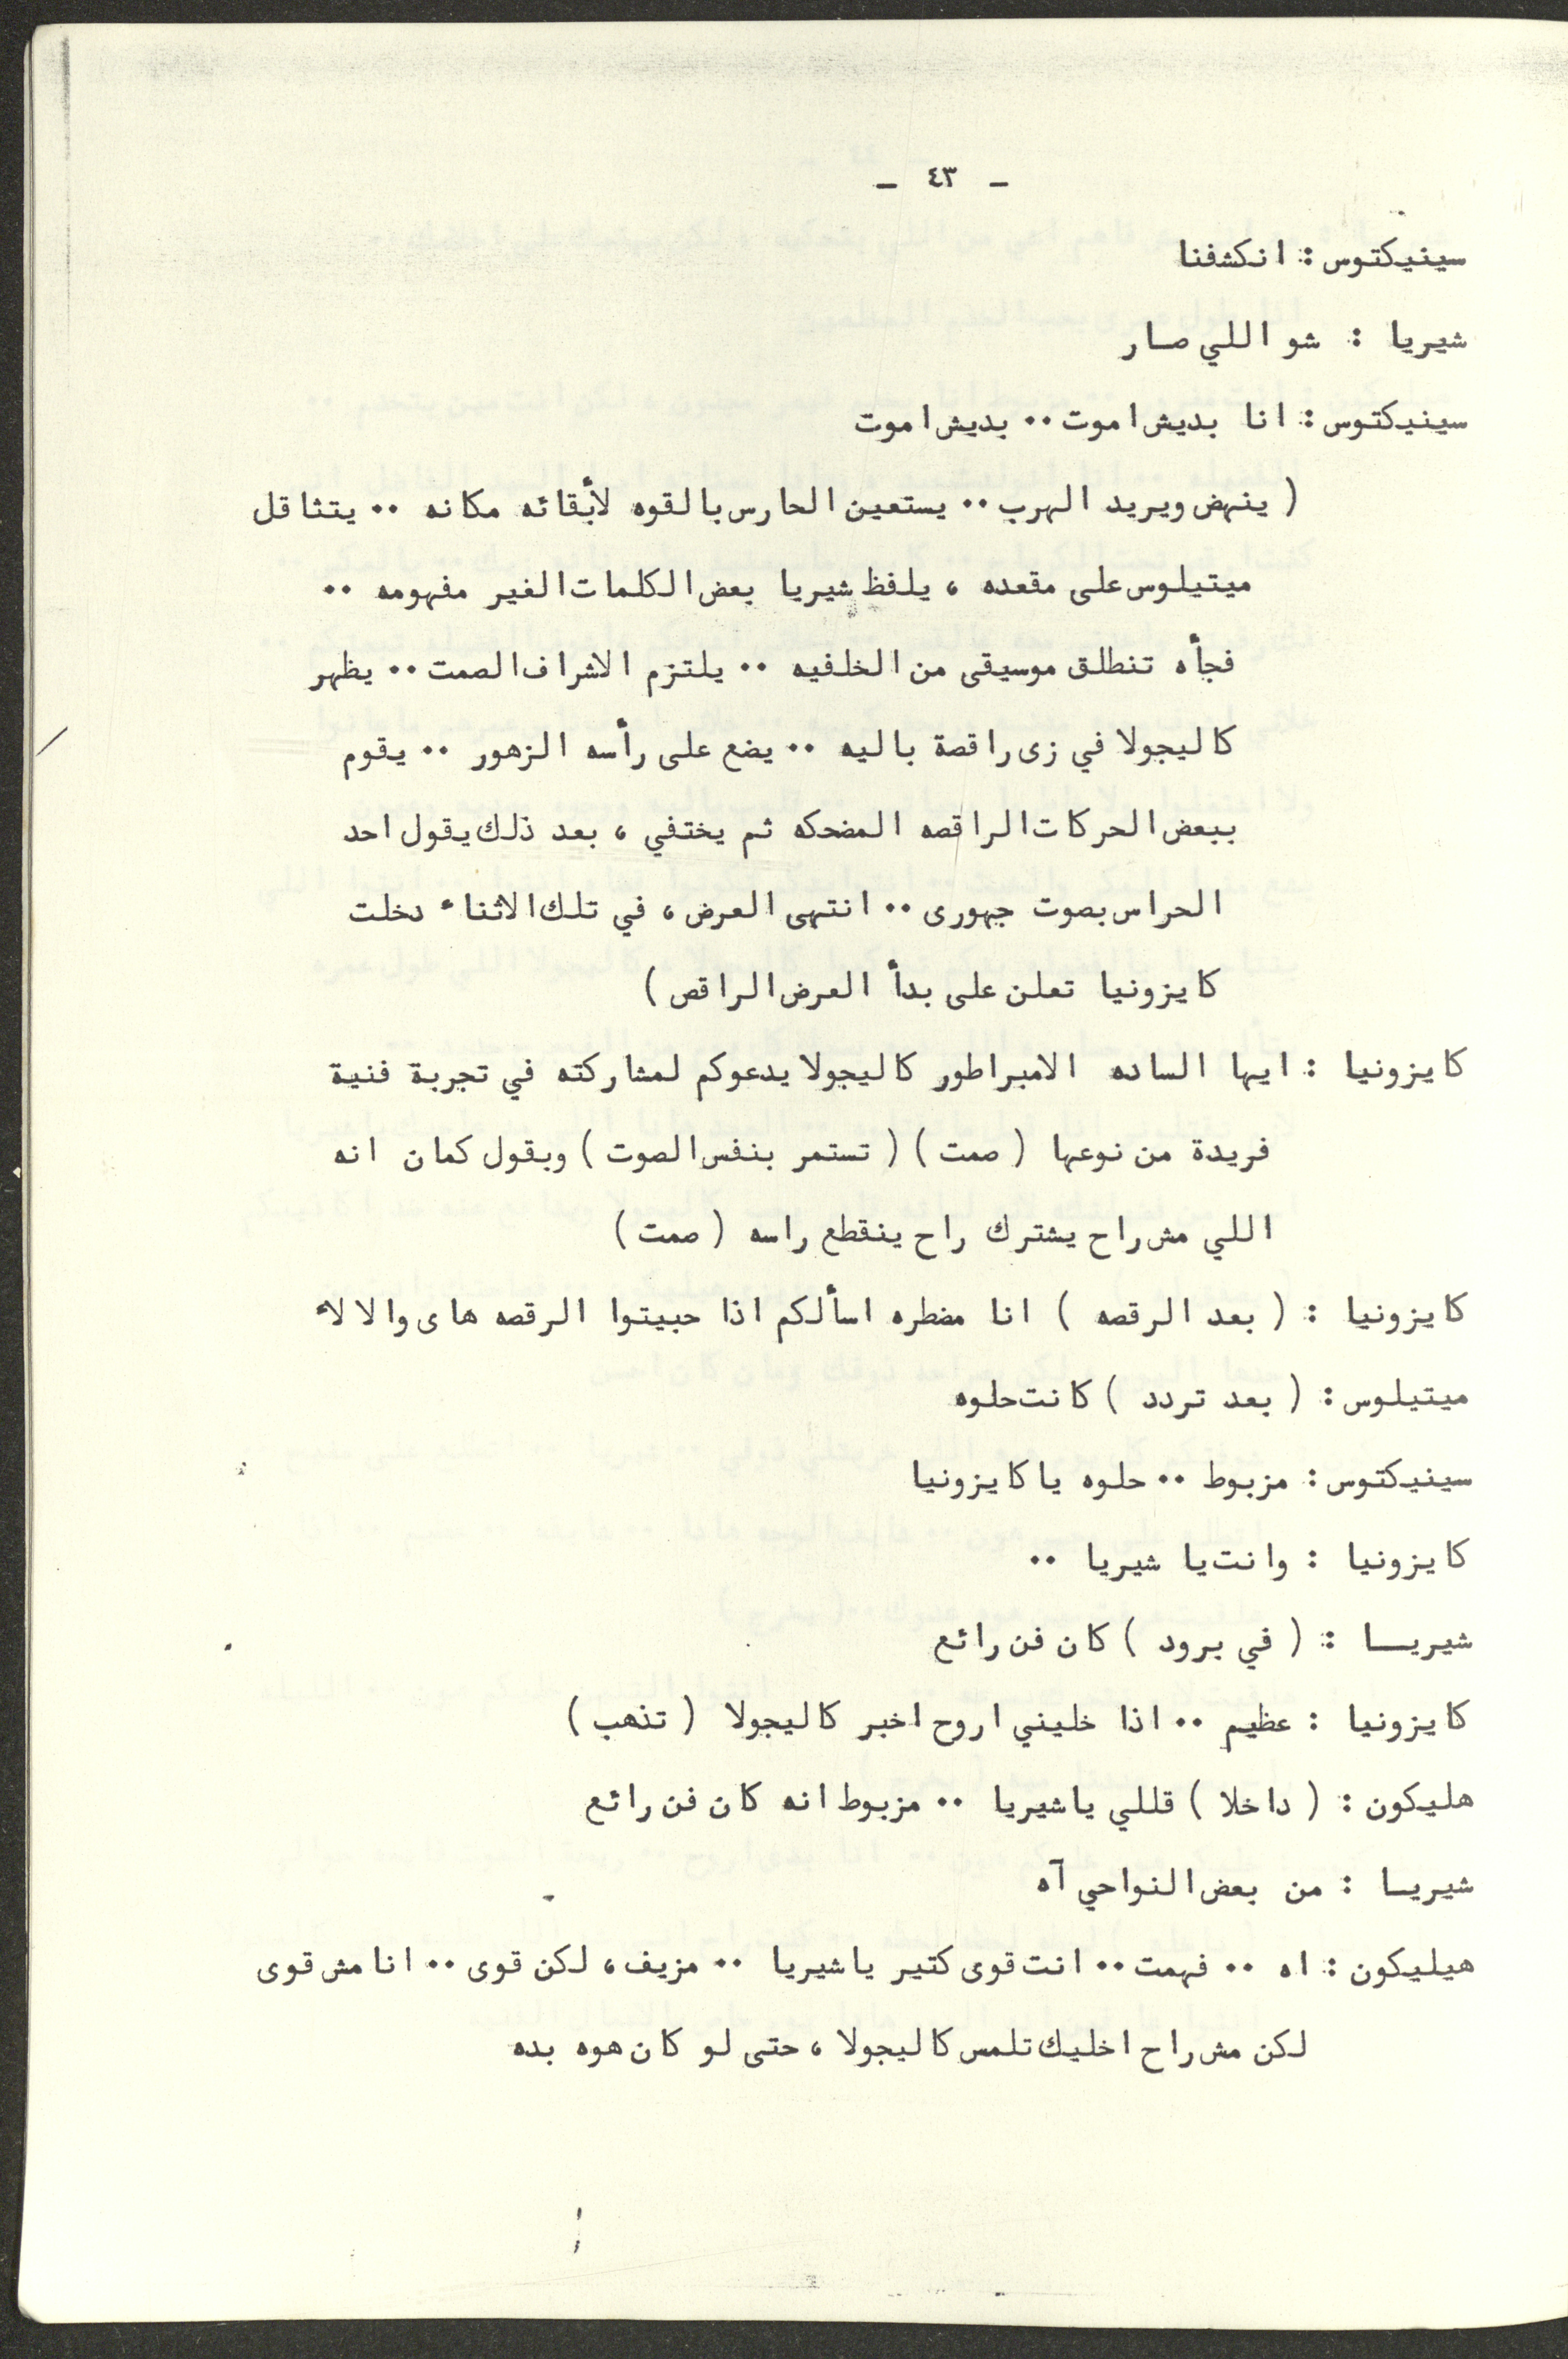 - ٤٣ -
سينيكتوس : انكشفنا
شيريا : شو اللي صار
سينيكتوس : انا بديش اموت .. بديش اموت
( ينهض ويريد الهرب .. يستعين الحارس بالقوه لأبقائه مكانه .. يتثاقل
ميتيلوس على مقعده ، يلفظ شيريا بعض الكلمات الغير مفهومه ..
فجأه تنطلق موسيقى من الخلفيه .. يلتزم الاشراف الصمت .. يظهر
كاليجولا في زى راقصة باليه .. يضع على رأسه الزهور .. يقوم
ببعض الحركات الراقصه المضحكه ثم يختفي ، بعد ذلك يقول احد
الحراس بصوت جهورى .. انتهى العرض ، في تلك الاثناء دخلت
كايزونيا تعلن على بدأ العرض الراقص )
كايزونيا : ايها الساده الامبراطور كاليجولا يدعوكم لمشاركته في تجربة فنية
فريدة من نوعها ( صمت ) ( تستمر بنفس الصوت ) وبقول كمان انه
اللي مش راح يشترك راح ينقطع راسه ( صمت )
كايزونيا : ( بعد الرقصه ) انا مضطره اسألكم اذا حبيتوا الرقصه هاى والا لاء
ميتيلوس : ( بعد تردد ) كانت حلوه
سينيكتوس : مزبوط .. حلوه يا كايزونيا
كايزونيا : وانت يا شيريا ..
شيريـــا : ( في برود ) كان فن رائع
كايزونيا : عظيم .. اذا خليني اروح اخبر كاليجولا ( تذهب )
هليكون : ( داخلا ) قللي يا شيريا .. مزبوط انه كان فن رائع
شيريــا : من بعض النواحي آه
هيليكون : اه .. فهمت .. انت قوى كتير يا شيريا .. مزيف ، لكن قوى .. انا مش قوى
لكن مش راح اخليك تلمس كاليجولا ، حتى لو كان هوه بده